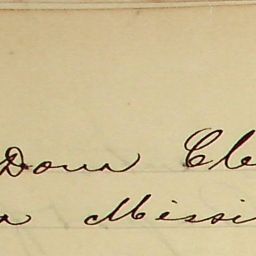 Dom Cle
n Missi